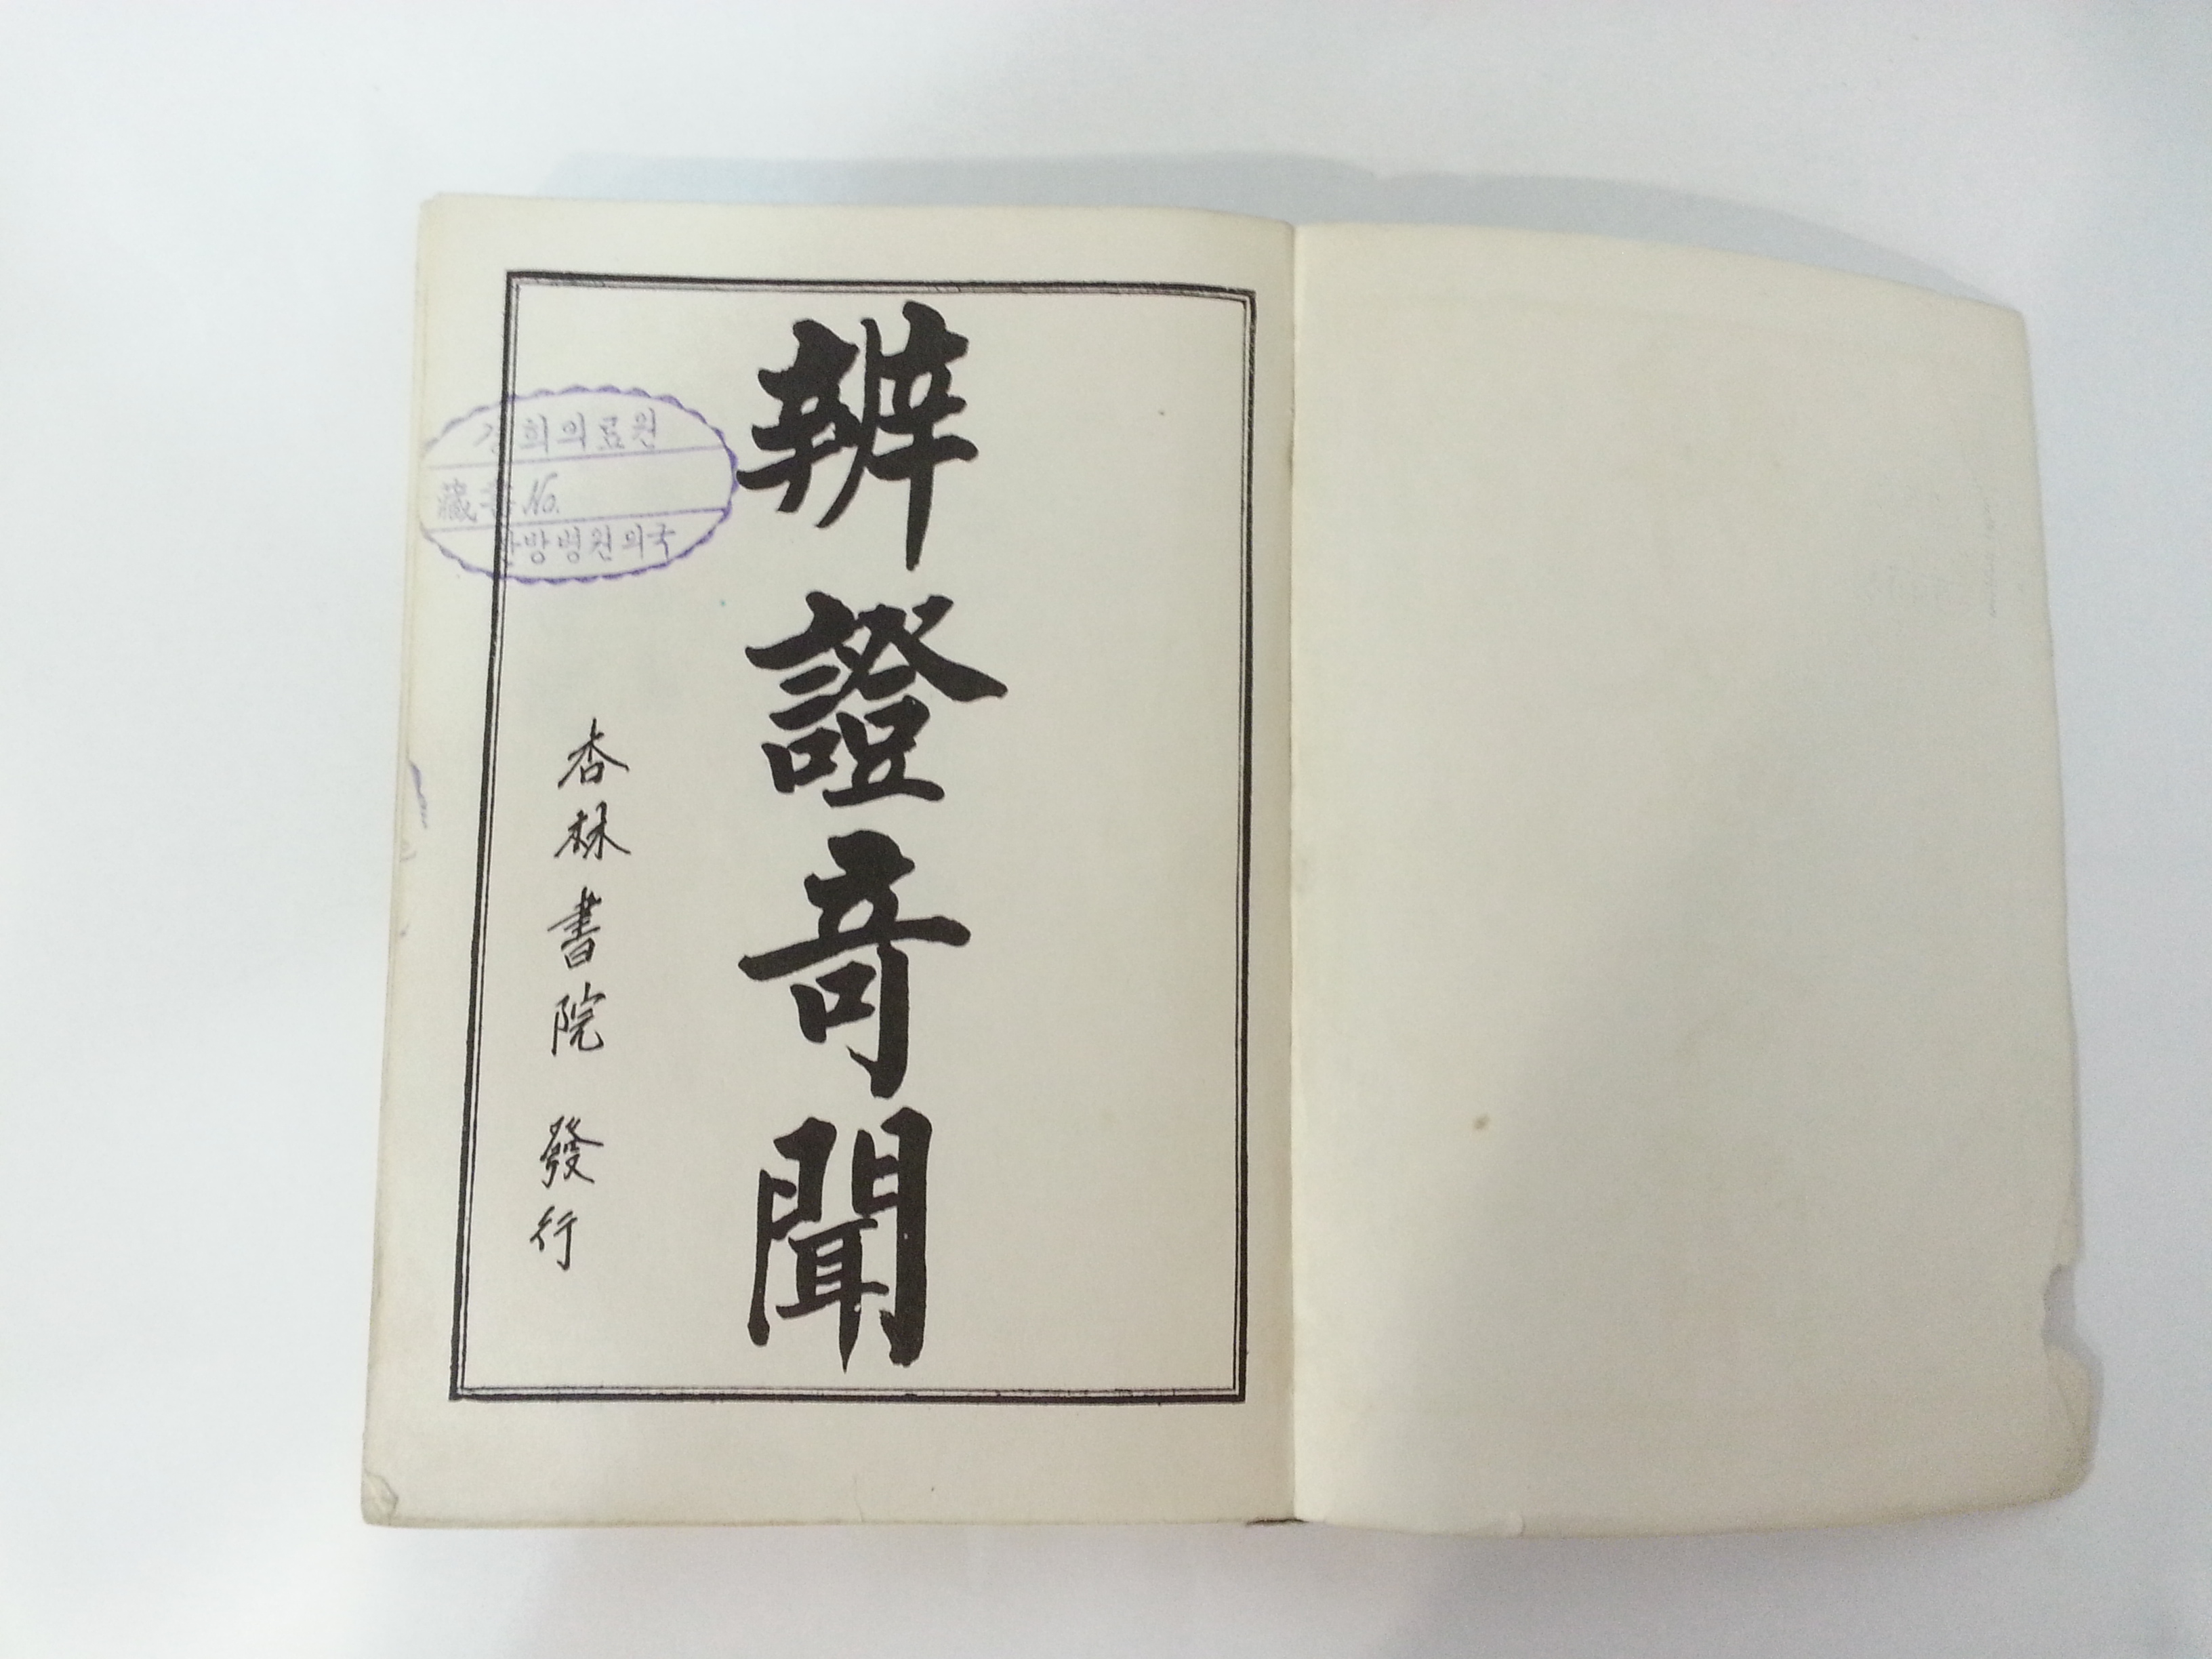 辨證奇聞
杏林書院 發行
경희의료원
藏書 No.
한방병원의국